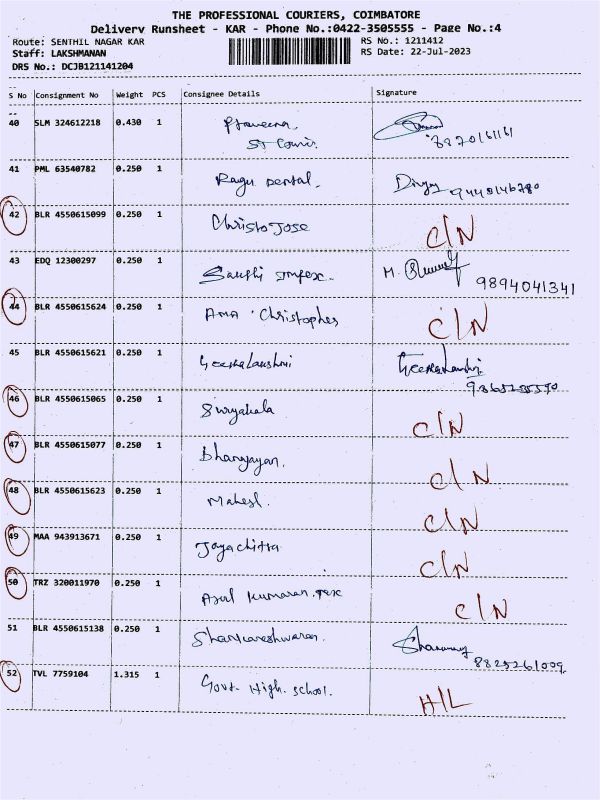 THE PROFESSIONAL COURIERS, COIMBATORE
Delivery Runsheet - KAR - Phone No.:0422-3505555 - Page No.:4
Route: SENTHIL NAGAR KAR
RS No.: 1211412
Staff: LAKSHMANAN
RS Date: 22-Jul-2023
DRS No.: DCJB121141204
S No Consignment No Weight PCS Consignee Details Signature
40 SLM 324612218 0.430 1 Praveena
ST Courier
41 PML 63540782 0.250 1 Ragu Dental. Divya
42 BLR 4550615099 0.250 1 Christo Jose C/N
43 EDQ 12300297 0.250 1 Sakthi Impex. M.
9894041341
44 BLR 4550615624 0.250 1 AMA Christopher C/N
45 BLR 4550615621 0.250 1 Geethalakshmi
46 BLR 4550615065 0.250 1 Suryakala C/N
47 BLR 4550615077 0.250 1 C/N
48 BLR 4550615623 0.250 1 Mahesh C/N
49 MAA 943913671 0.250 1 Jayachitra C/N
50 TRZ 320011970 0.250 1 Kumaran Tex C/N
51 BLR 4550615138 0.250 1 Shankareshwaran.
8825261009
52 TVL 7759104 1.315 1 Govt. High. school. H/L